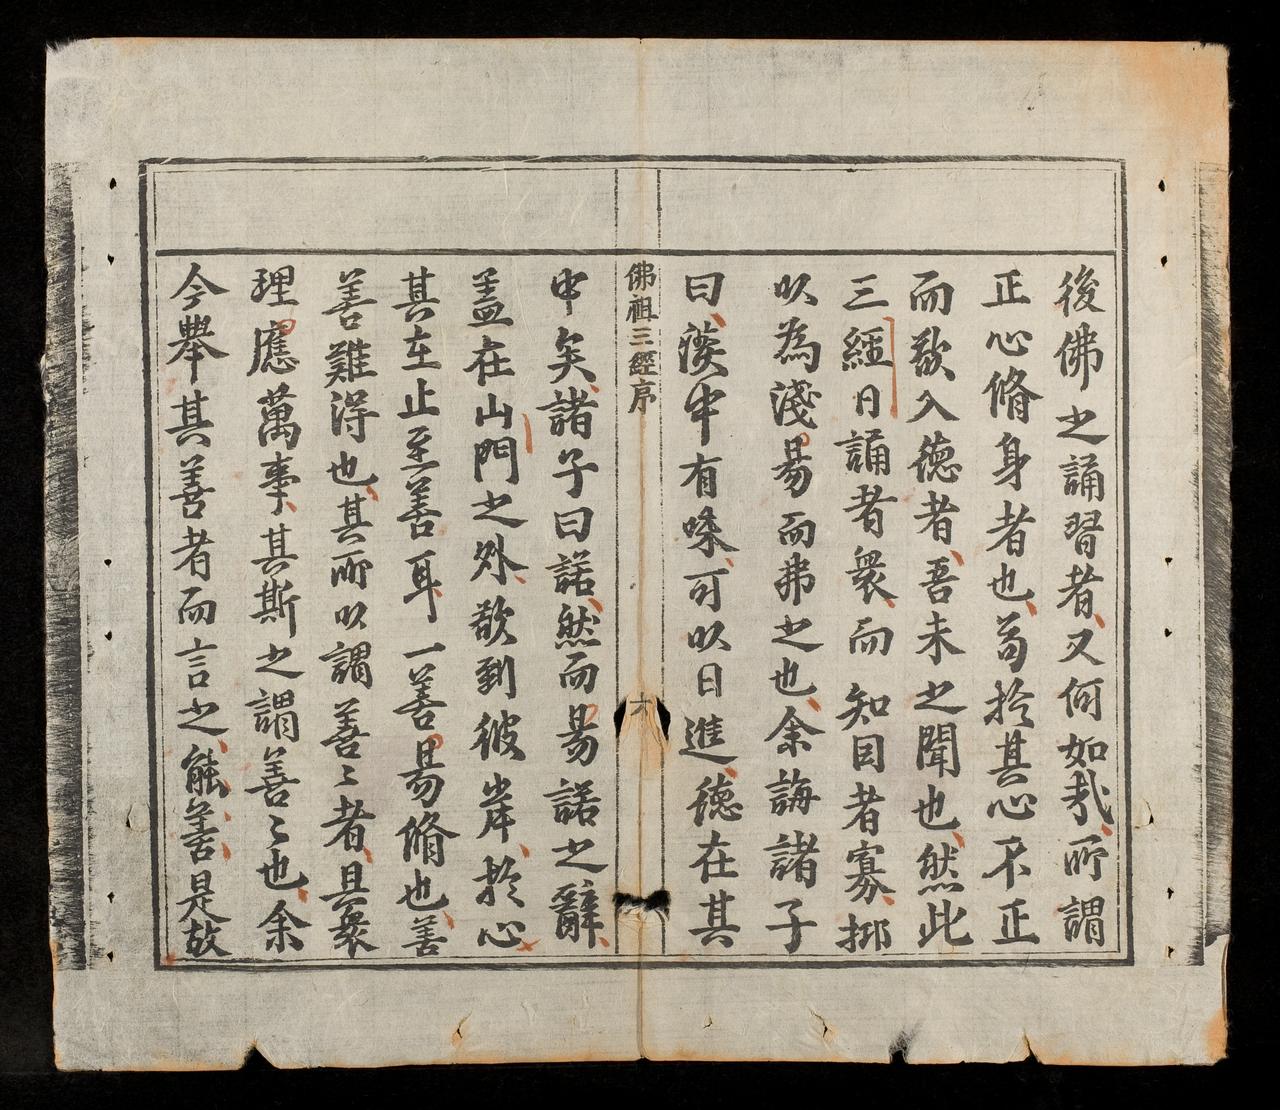 後佛之誦習者又何如哉所謂
正心脩身者也苟於其心不正
而欲入德者吾未之聞也然此
三經日誦者衆而知目者寡抑
以為淺易而弗之也余誨諸子
曰淡中有味可以日進德在其
佛祖三經序
中矣諸子曰諾然而易諾之辭
盖在山門之外欲到彼岸於心
其在止至善耳一善易脩也善
善難得也其所以謂善善〻者具衆
理應萬事其斯之謂善〻也余
今舉其善者而言之能善是故